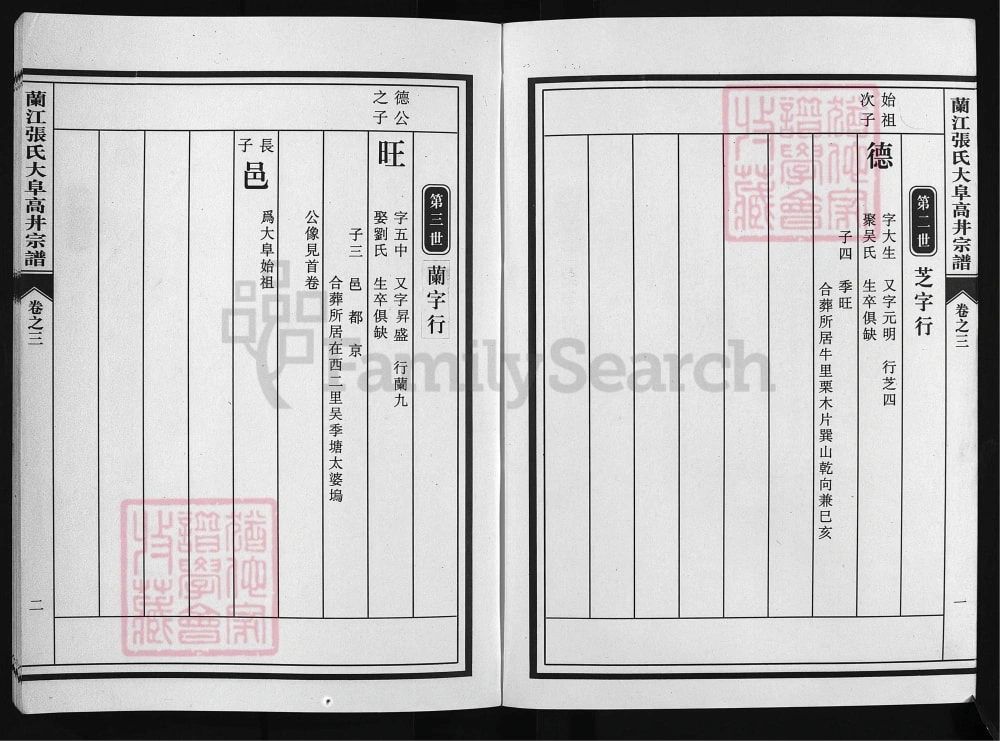 蘭江張氏大阜高井宗譜
卷之三
一
第二世
芝字行
始祖
次子
德
字大生 又字元明 行芝四
聚吴氏 生卒俱缺
子四 季旺
合葬所居牛里栗木片巽山乾向兼巳亥
第三世
蘭字行
德公
之子
旺
字五中 又字昇盛 行蘭九
娶劉氏 生卒俱缺
子三 邑 都 京
合葬所居在西二里吴季塘太婆塢
公像見首卷
長
子
邑
爲大阜始祖
蘭江張氏大阜高井宗譜
卷之三
二
FamilySearch